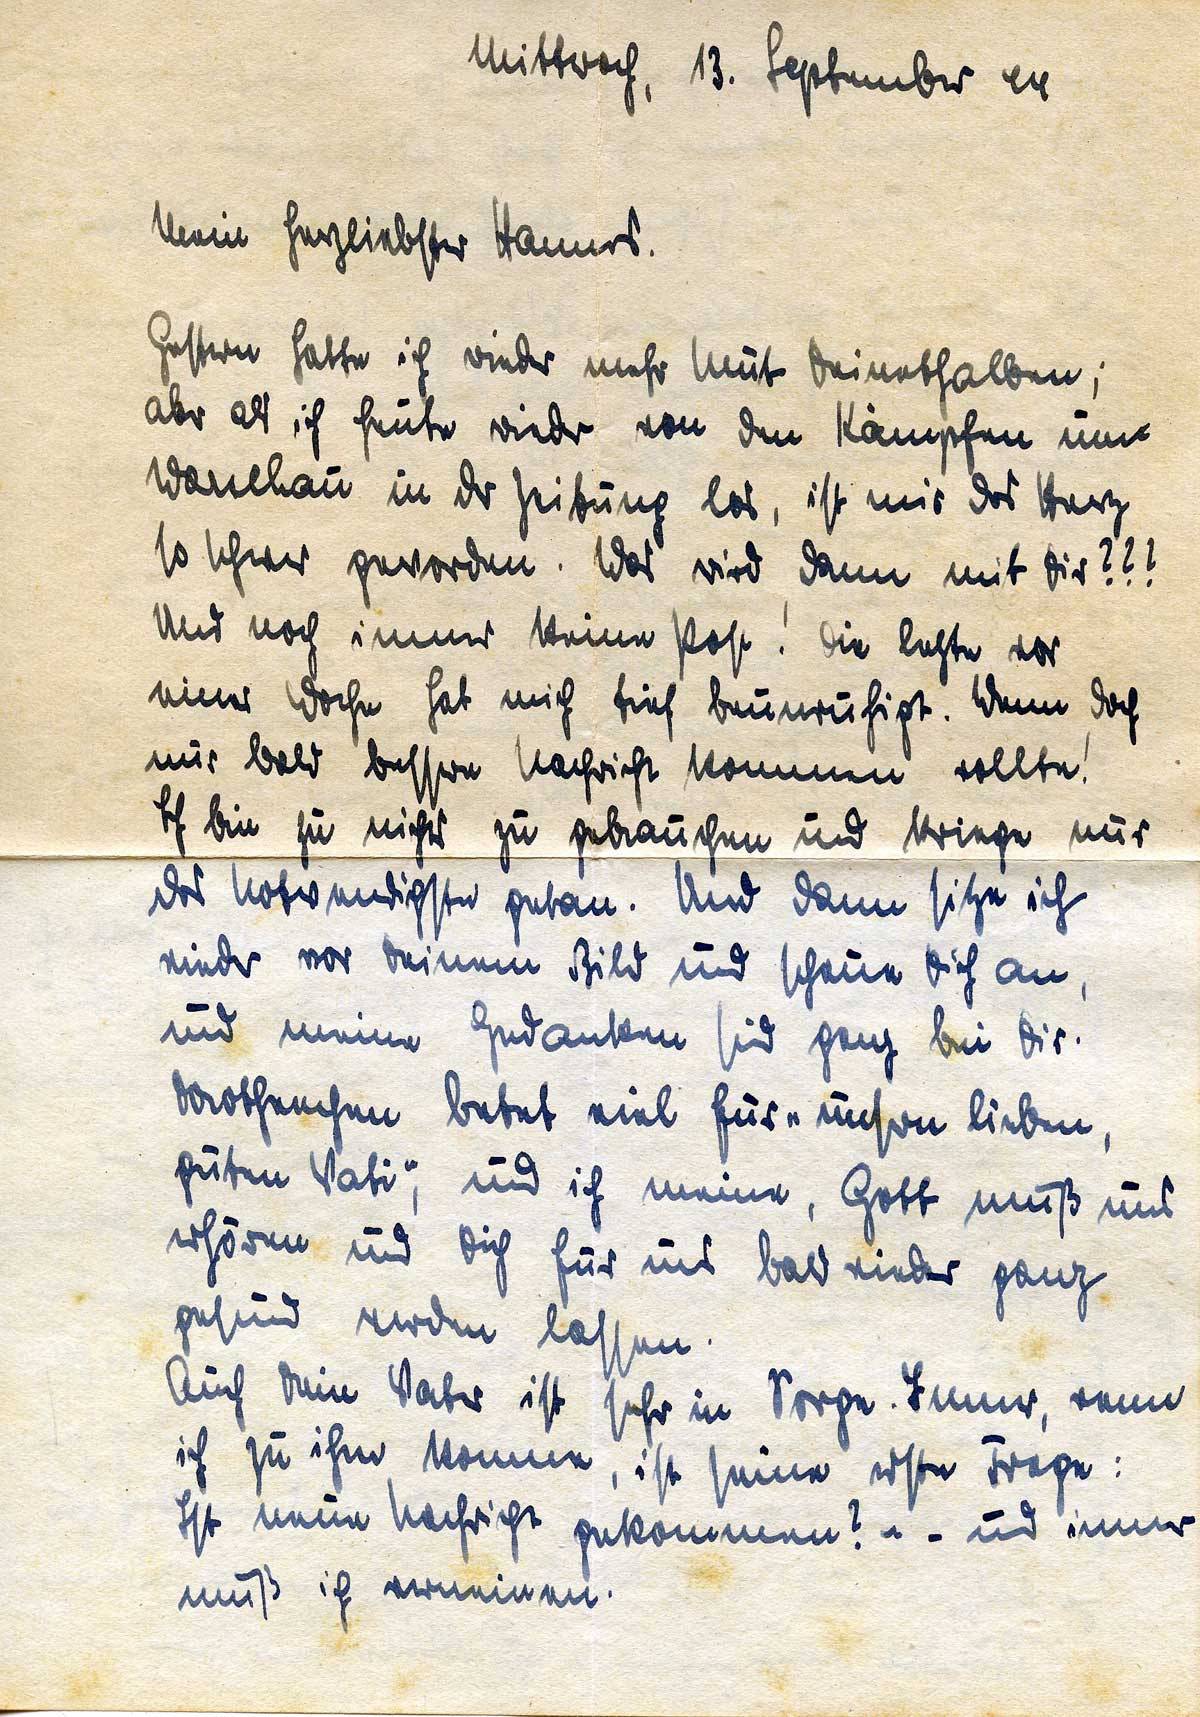 Mittwoch, 13. September 44
Mein herzliebster Hannes.
Gestern hatte ich wieder mehr Mut Deinethalben;
aber als ich heute wieder von den Kämpfen um
Warschau in der Zeitung las, ist mir das Herz
so schwer geworden. Was wird dann mit Dir???
Und noch immer keine Post! Die letzte vor
einer Woche hat mich tief beunruhigt. Wenn doch
nur bald bessere Nachricht kommen wollte!
Ich bin zu nichts zu gebrauchen und kriege nur
das Notwendigste getan. Und dann sitze ich
wieder vor Deinem Bild und schaue Dich an,
und meine Gedanken sind ganz bei Dir.
Dorotheechen betet viel für „unsern lieben,
guten Vati“, und ich meine, Gott muß uns
erhören und Dich für uns bald wieder ganz
gesund werden lassen.
Auch Dein Vater ist sehr in Sorge. Immer, wenn
ich zu ihm komme, ist seine erste Frage:
Ist neue Nachricht gekommen? - - und immer
muß ich verneinen.